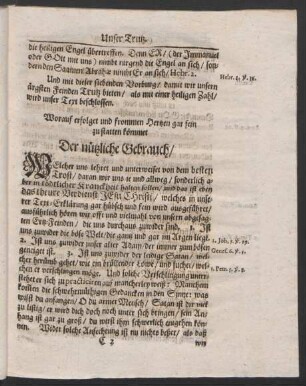 Unser Trutz.
die heiligen Engel übertreffen. Denn ER/ (der Immanuel
oder GOtt mit uns) nimbt nirgend die Engel an sich/ son-
dern den Saamen Abrahæ nimbt Er an sich/ Hebr. 2.
Hebr. 2. ℣. 16.
Und mit dieser siebenden Vorburg/ damit wir unsern
ärgsten Feinden Trutz bieten/ als mit einer heiligen Zahl/
wird unser Text beschlossen.
Worauf erfolget und frommen Hertzen gar fein
zustatten kömmet
Der nützliche Gebrauch/
WElcher uns lehret und unterweiset von dem besten
Trost/ daran wir uns in und allweg/ sonderlich a-
ber in tödtlicher Kranckheit halten sollen/ und das ist eben
das theure Verdienst JEsu Christi/ welches in unse-
rer Text-Erklärung gar hübsch und fein wird ausgeführet/
ausführlich hören wir offt und vielmahl von unsern abgesag-
ten Ertz-Feinden/ die uns durchaus zuwider sind. 1. Ist
uns zuwider die böse Welt/ die gantz und gar im Argen liegt.
1. Joh. 5. ℣. 19.
2. Ist uns zuwider unser alter Adam/ der immer zum bösen
Genes. 6. ℣. 5.
geneiget ist. 3. Ist uns zuwider der leidige Satan/ wel-
cher herümb gehet/ wie ein brüllender Löwe/ und suchet/ wel-
1. Petr. 5. ℣. 8.
chen er verschlingen möge. Und solche Verschlingung unter-
stehet er sich zu practiciren auf mancherley weise: Manchem
kosten die schwehrmühtigen Gedancken in den Sinn: was
wilst du anfangen/ O du armer Mensch/ Satan ist dir viel
zu listig/ er wird dich doch noch unter sich bringen/ sein An-
hang ist gar zu groß/ du wirst ihm schwerlich entgehen kön-
nen. Wider solche Anfechtung ist nu nichts besser/ als daß
C 2
wir